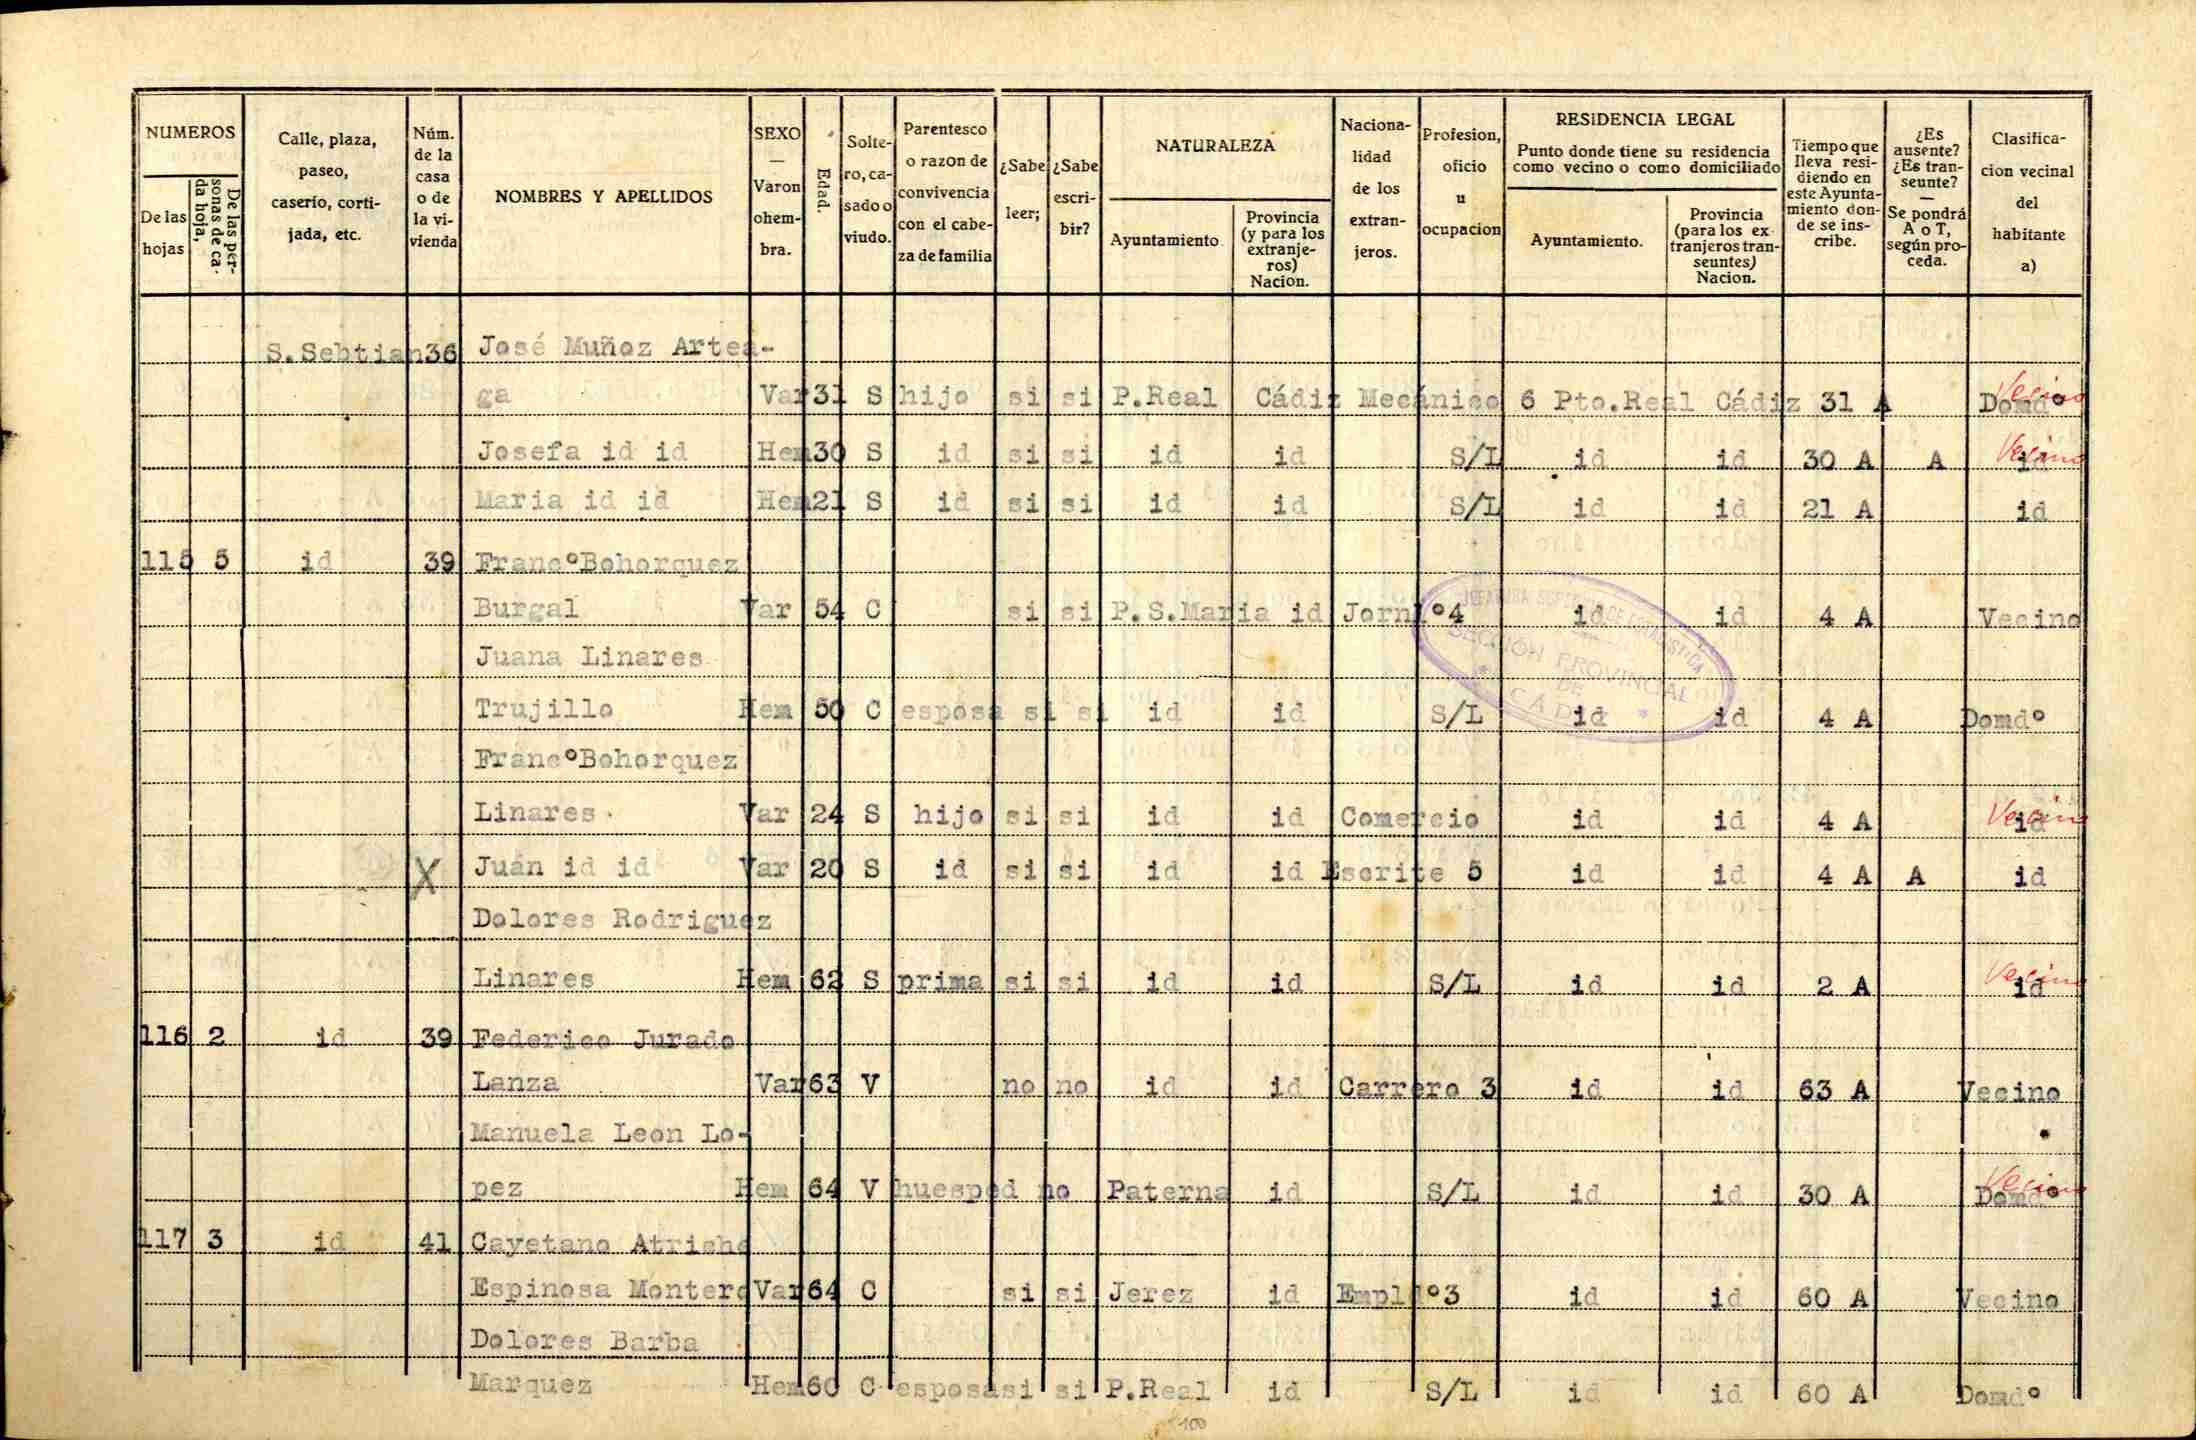 NUMEROS
De las hojas
De las personas de cada hoja,
Calle, plaza, paseo, caserio, cortijada, etc.
Núm. de la casa o de la vivienda
NOMBRES Y APELLIDOS
SEXO — Varon ohembra.
Edad.
Soltero, casado o viudo.
Parentesco o razon de convivencia con el cabeza de familia
¿Sabe leer;
¿Sabe escribir?
NATURALEZA
Ayuntamiento
Provincia (y para los extranjeros) Nacion.
Nacionalidad de los extranjeros.
Profesion, oficio u ocupacion
RESIDENCIA LEGAL
Punto donde tiene su residencia como vecino o como domiciliado
Ayuntamiento.
Provincia (para los ex tranjeros transeuntes) Nacion.
Tiempo que lleva residiendo en este Ayuntamiento donde se inscribe.
¿Es ausente? ¿Es transeunte? — Se pondrá A o T, según proceda.
Clasificacion vecinal del habitante a)
S.Sebtian 36 José Muñoz Artea-
ga Var 31 S hijo si si P.Real Cádiz Mecánico 6 Pto.Real Cádiz 31 A Domdº Vecino
Josefa id id Hem 30 S id si si id id S/L id id 30 A A id Vecino
Maria id id Hem 21 S id si si id id S/L id id 21 A id
115 5 id 39 FrancºBohorquez
Burgal Var 54 C si si P.S.Maria id Jornlº4 id id 4 A Vecino
Juana Linares
Trujillo Hem 50 C esposa si si id id S/L id id 4 A Domdº
FrancºBohorquez
Linares Var 24 S hijo si si id id Comercio id id 4 A id Vecino
X Juan id id Var 20 S id si si id id Escrite 5 id id 4 A A id
Dolores Rodriguez
Linares Hem 62 S prima si si id id S/L id id 2 A id Vecino
116 2 id 39 Federico Jurado
Lanza Var 63 V no no id id Carrero 3 id id 63 A Vecino
Manuela Leon Lo-
pez Hem 64 V huesped no Paterna id S/L id id 30 A Domdº Vecino
117 3 id 41 Cayetano Atriche
Espinosa Montero Var 64 C si si Jerez id Empldº3 id id 60 A Vecino
Dolores Barba
Marquez Hem 60 C esposa si si P.Real id S/L id id 60 A Domdº
SECCIÓN PROVINCIAL
DE
* CADIZ *
100